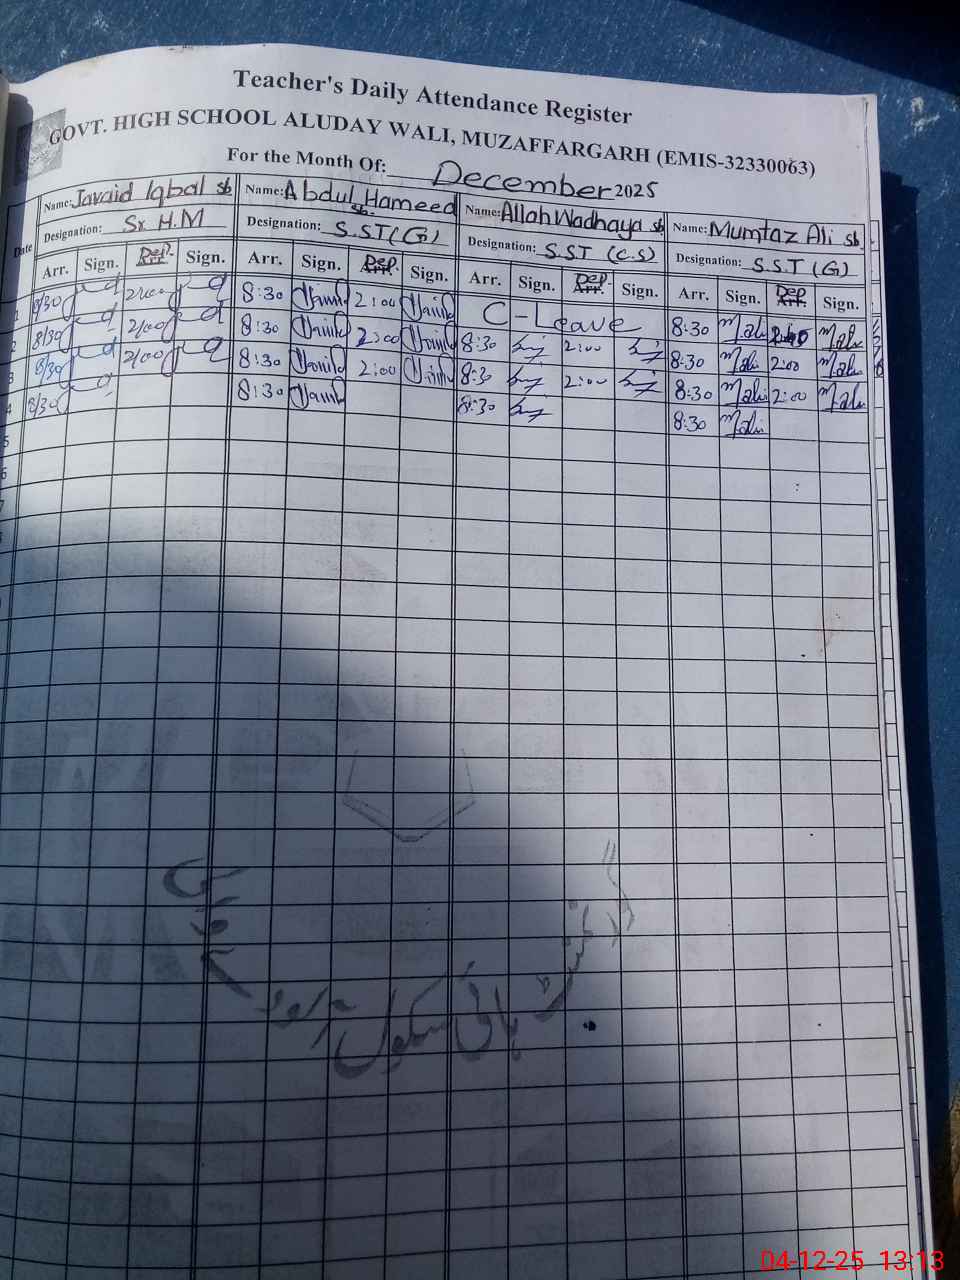 Teacher's Daily Attendance Register
GOVT. HIGH SCHOOL ALUDAY WALI, MUZAFFARGARH (EMIS-32330063)
For the Month Of: December 2025
Date
Name: Javaid Iqbal sb Name: Abdul Hameed sb. Name: Allah Wadhaya sb Name: Mumtaz Ali sb
Designation: Sr. H.M Designation: S.ST(G) Designation: S.ST (C.S) Designation: S.S.T (G)
Arr. Sign. Dep. Sign. Arr. Sign. Dep. Sign. Arr. Sign. Dep. Sign. Arr. Sign. Dep. Sign.
1 8/30 2/00 8:30 2:00 C-Leave 8:30
2 8/30 2/00 8:30 2:00 8:30 2:00 8:30 2:00
3 8/30 2/00 8:30 2:00 8:30 2:00 8:30 2:00
4 8/30 8:30 8:30 8:30
5
6
7
8
ہائی سکول
04-12-25 13:13